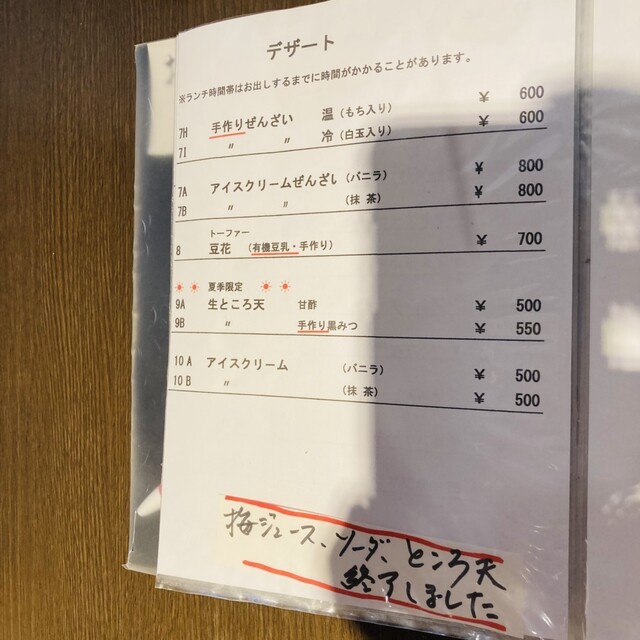 デザート
※ランチ時間帯はお出しするまでに時間がかかることがあります。
7H 手作りぜんざい 温 (もち入り) ¥ 600
7I 〃 〃 冷 (白玉入り) ¥ 600
7A アイスクリームぜんざい (バニラ) ¥ 800
7B 〃 〃 (抹 茶) ¥ 800
トーファー
8 豆花 (有機豆乳・手作り) ¥ 700
夏季限定
9A 生ところ天 甘酢 ¥ 500
9B 〃 手作り黒みつ ¥ 550
10 A アイスクリーム (バニラ) ¥ 500
10 B 〃 (抹 茶) ¥ 500
梅ジュース、ソーダ、ところ天
終了しました